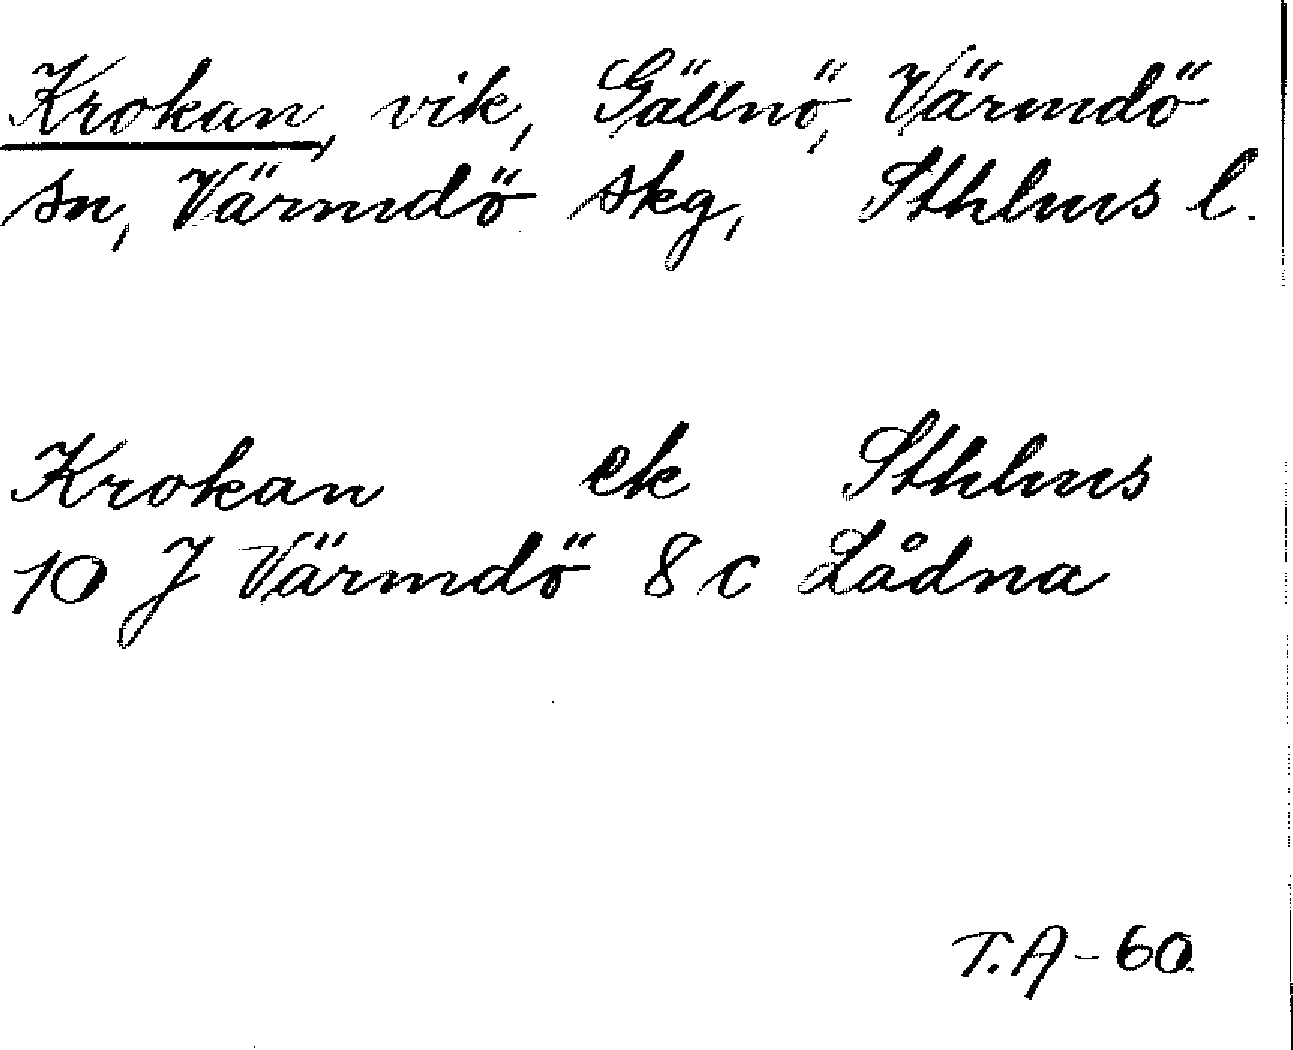 Krokan, vik, Gällnö, Värmdö
sn, Värmdö skg, Sthlms l.
Krokan ek Sthlms
10 J Värmdö 8 c Lådna
T.A-60